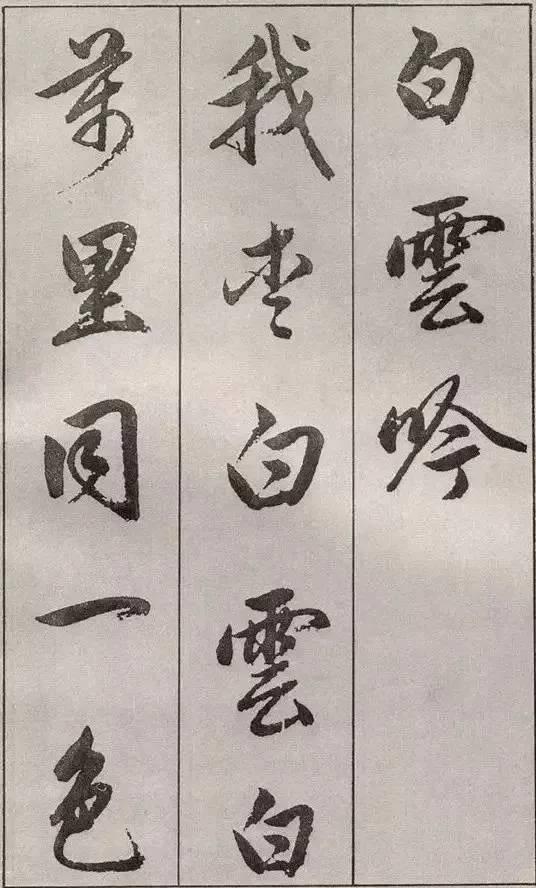 白雲吟
我白雲白
萬里同一色